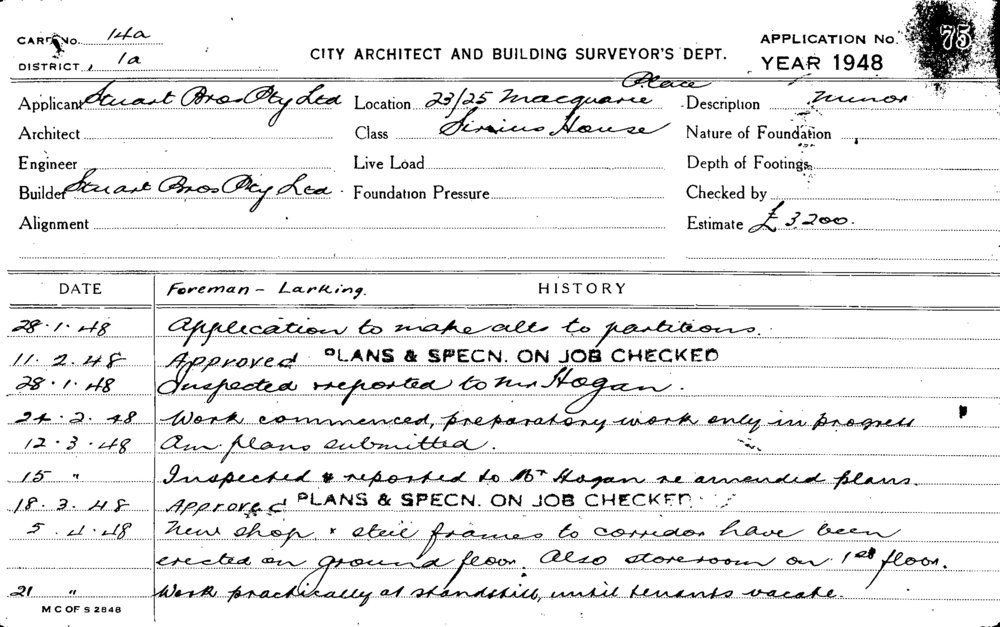 CARD No. 14a
DISTRICT, 1a
CITY ARCHITECT AND BUILDING SURVEYOR'S DEPT.
APPLICATION No. 75
YEAR 1948
Applicant Stuart Bros Pty Ltd Location 23/25 Macquarie Place Description Minor
Architect Class Sirius House Nature of Foundation
Engineer Live Load Depth of Footings
Builder Stuart Bros Pty Ltd Foundation Pressure Checked by
Alignment Estimate £3200.
DATE Foreman - Larking. HISTORY
28.1.48 Application to make alts to partitions.
11.2.48 Approved PLANS & SPECN. ON JOB CHECKED
28.1.48 Inspected & reported to Mr Hogan.
24.2.48 Work commenced, preparatory work only in progress
12.3.48 Am. plans submitted.
15 " Inspected & reported to Mr Hogan re amended plans.
18.3.48 Approved PLANS & SPECN. ON JOB CHECKED
5.4.48 New shop & steel frames to corridor have been
erected on ground floor. Also storeroom on 1st floor.
21 " Work practically at standstill, until tenants vacate.
M C OF S 2848